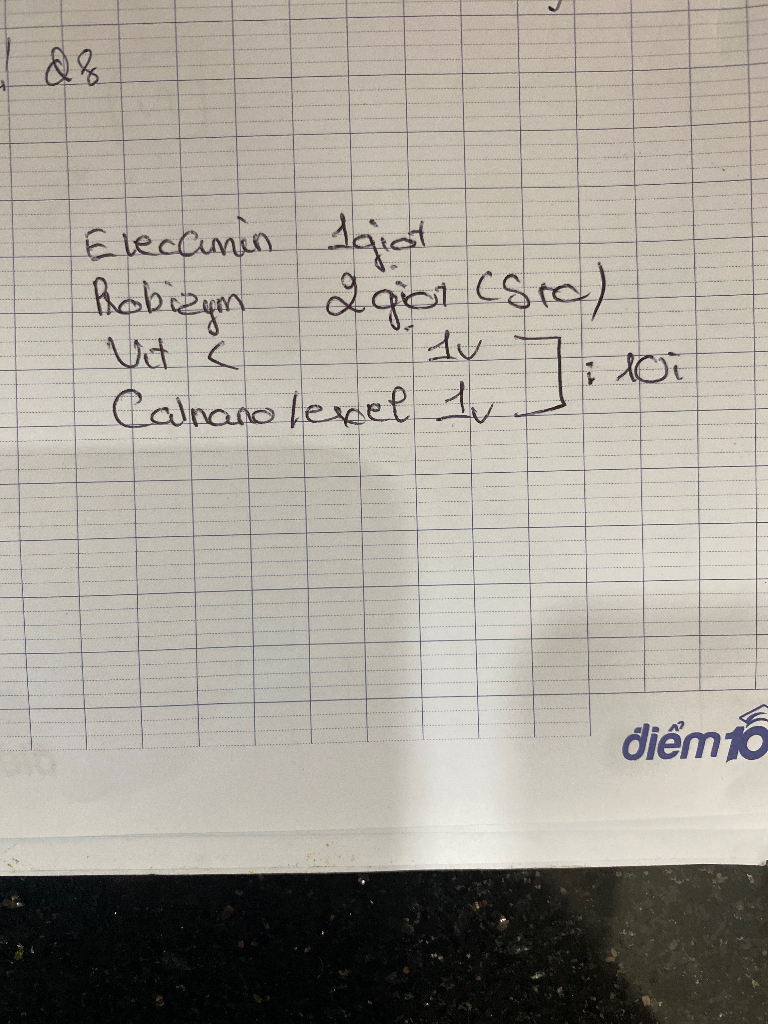 Q8
Elecamin 1 giọt
Probizym 2 giọt (S+C)
Vit C 1v
Calnano lexel 1v ] : 10i
điểm10